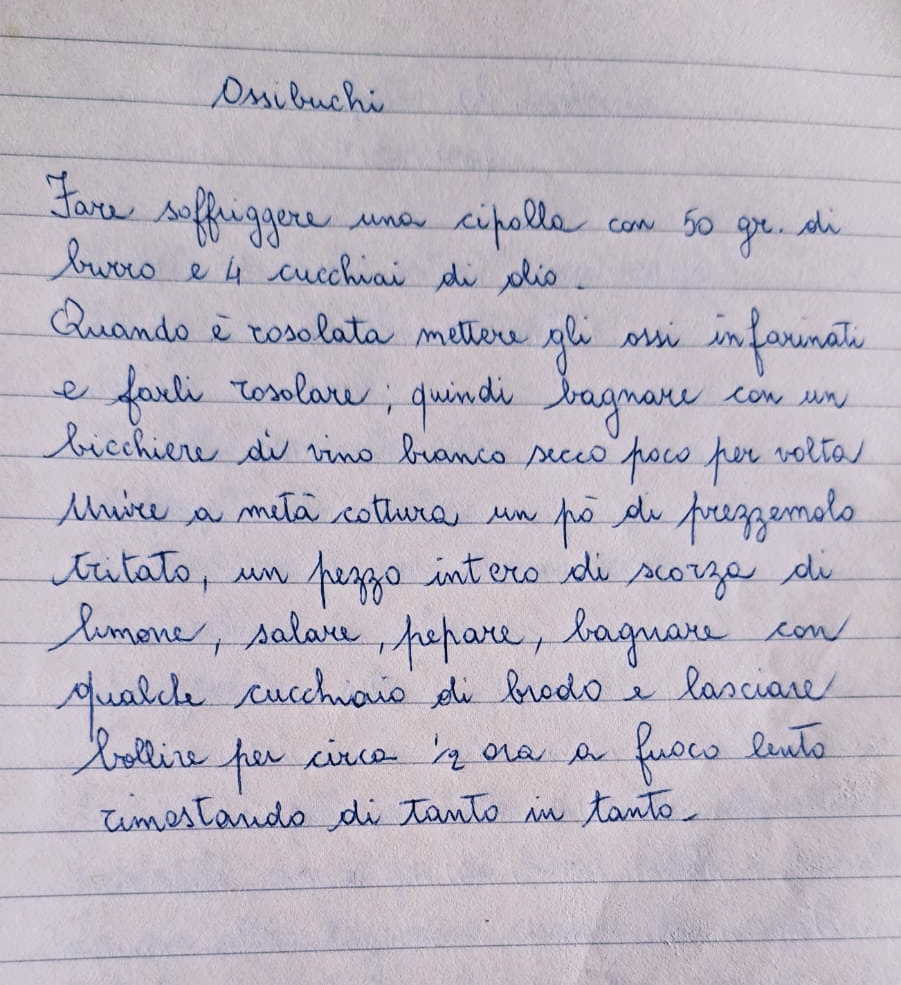 Ossibuchi
Fare soffriggere una cipolla con 50 gr. di
burro e 4 cucchiai di olio.
Quando è rosolata mettere gli ossi infarinati
e farli rosolare; quindi bagnare con un
bicchiere di vino bianco secco poco per volta
Unire a metà cottura un pò di prezzemolo
tritato, un pezzo intero di scorza di
limone, salare, pepare, bagnare con
qualche cucchiaio di brodo e lasciare
bollire per circa ½ ora a fuoco lento
rimestando di tanto in tanto.